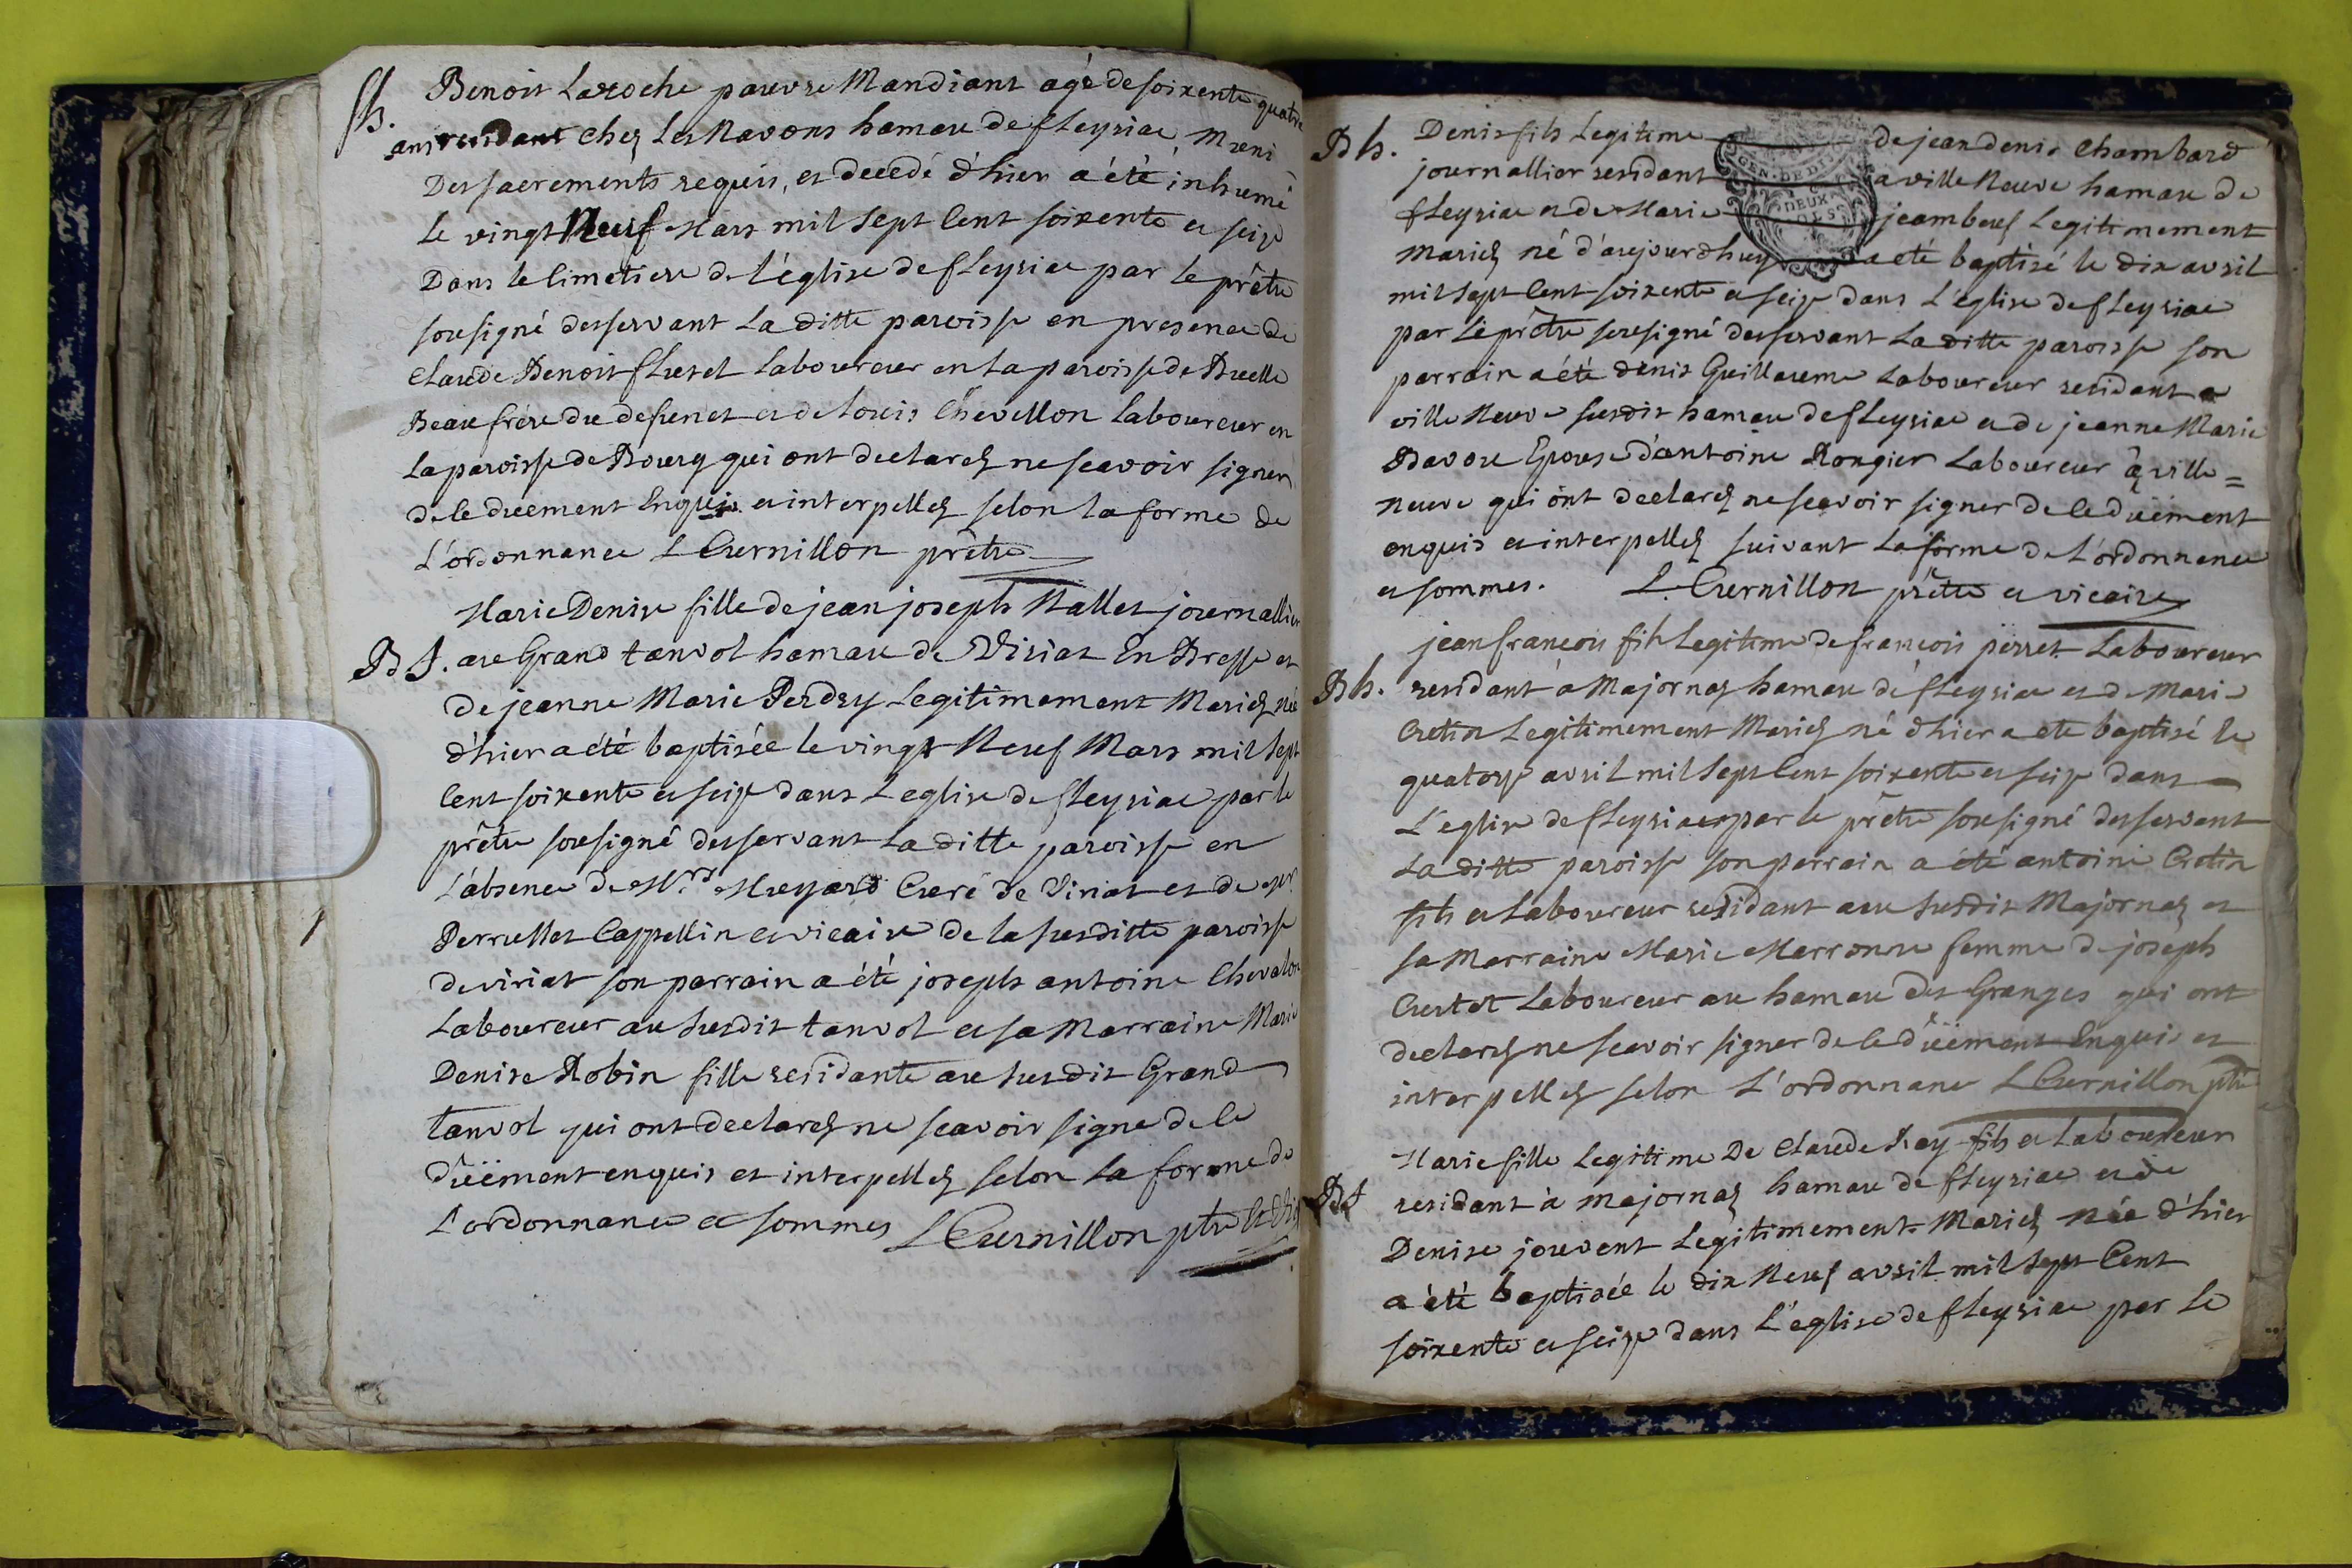 Sh. Benoit Laroche pauvre Mandiant agé de soixente quatre
ans residant chez Les Navons hamau de fleyriac, Muni
Des sacrements requis, et decedé d'hier a été inhumé
Le vingt Neuf Mars mil sept Cent soixente et seize
Dans le Cimetiere de l'église de fleyriac par le prêtre
sousigné desservant La ditte paroisse en presence de
Claude Benoit fluret Laboureur en La paroisse de Buelle
Beaufrére du defunct et de Louis Chevillon Laboureur en
La paroisse de Bourg qui ont declarez ne scavoir signer
de ce duement Enquis et interpellez selon la forme de
L'ordonnance L Curnillon prêtre
Marie Denise fille de jean joseph Nallet journallier
B f. au Grand tanvol hamau de Viriat En Bresse et
De jeanne Marie Perdry Legitimement Mariez née
d'hier a été baptisée le vingt Neuf Mars mil sept
Cent soixente et seize dans L'eglise de fleyriac par le
prêtre sousigné desservant La ditte paroisse en
L'absence de Mrs. Curé de Viriat et de
Perrullet Cappellin et vicaire de la susditte paroisse
de viriat son parrain a été joseph antoine Chevalon
Laboureur au susdit tanvol et sa Marraine Marie
Denise Robin fille residante au susdit Grand
tanvol qui ont declarez ne scavoir signe de ce
düëment enquis et interpellez selon La forme de
L'ordonnance et sommes L Curnillon ptre
B h. Denis fils Legitime de jean denis Chambard
journallier residant a ville Neuve hamau de
fleyriac et de Marie jeambeuf Legitimement
Mariez né d'aujourdhuy a été baptisé le dix avril
mil sept Cent soixente et seize dans L'église de fleyriac
par Le prêtre sousigné desservant La ditte paroisse son
parrain a été denis Guillaume Laboureur residant a
ville Neuve susdit hamau de fleyriac et de jeanne Marie
Epouse d'antoine Rongier Laboureur à ville=
neuve qui ont declarez ne scavoir signer de ce düëment
enquis et interpellez suivant La forme de L'ordonnance
et sommes. L. Curnillon prêtre et vicaire
jean françois fils Legitime de françois perret Laboureur
B h. residant à Majornaz hamau de fleyriac et de Marie
Cretin Legitimement Mariez né d'hier a eté baptisé le
quatorze avril mil sept Cent soixente et seize dans
L'eglise de fleyriac par le prêtre sousigné desservant
La ditte paroisse son parrain a été antoine Cretin
fils et Laboureur residant au susdit Majornaz et
sa Marraine Marie femme de joseph
Laboureur au hamau des Granges qui ont
declarez ne scavoir signer de ce düëment Enquis et
interpellez selon L'ordonnance L Curnillon ptre
Marie fille Legitime De Claude Ray fils et Laboureur
B f residant à majornaz hamau de fleyriac et de
Denise jouvent Legitimement Mariez née d'hier
a été baptisée le dix Neuf avril mil sept Cent
soixente et seize dans L'église de fleyriac par Le
GEN. DE DIJ
DEUX
SOLS